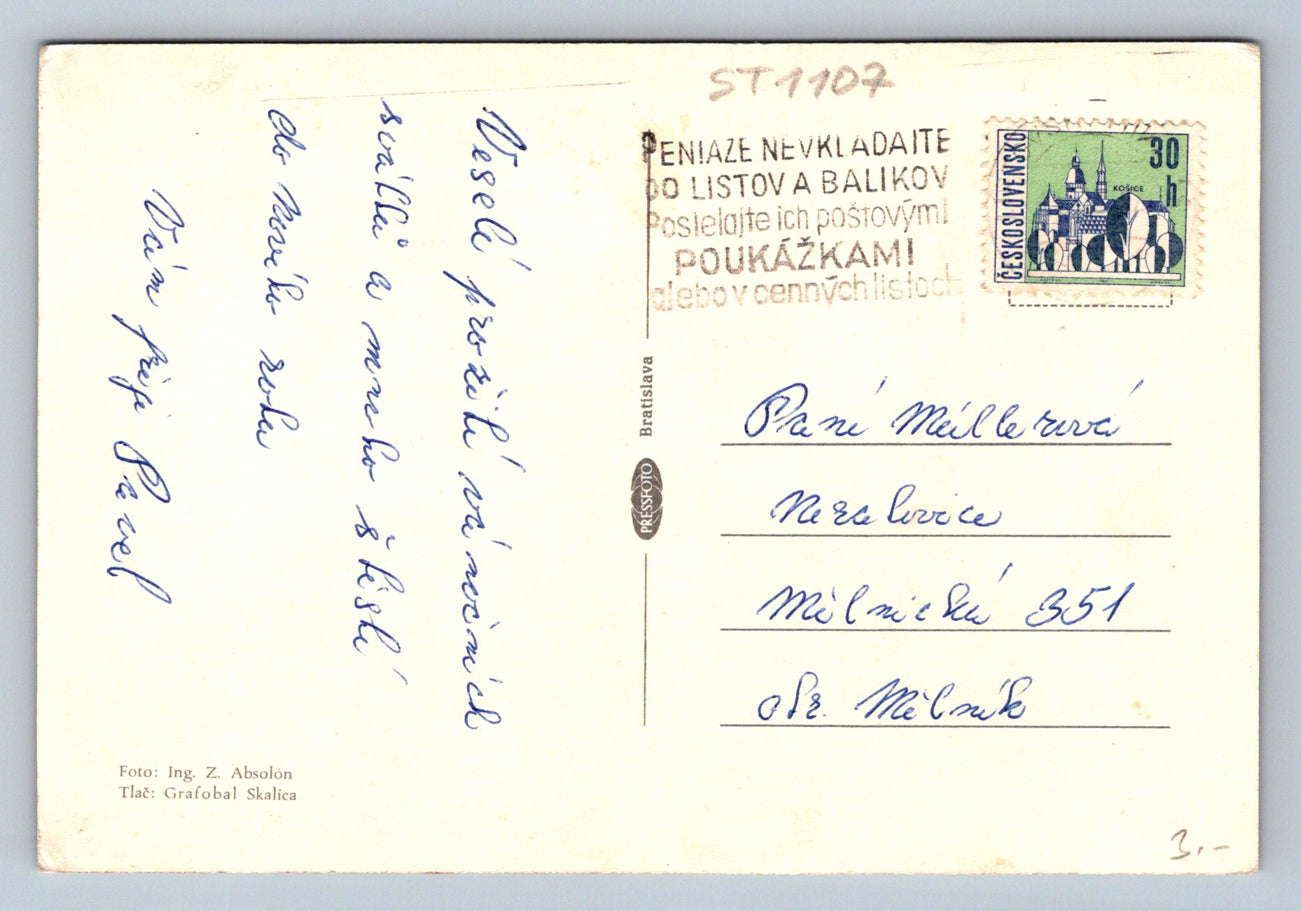 ST 1107
PENIAZE NEVKLADAJTE
DO LISTOV A BALIKOV
Posielajte ich poštovými
POUKÁŽKAMI
alebo v cenných listoch
ČESKOSLOVENSKO
30
h
KOŠICE
Veselé prožití vánočních
svátků a mnoho štěstí
do nového roku
Vám přeje Pavel
Bratislava
PRESSFOTO
Paní Müllerová
Neratovice
Mělnická 351
okr. Mělník
Foto: Ing. Z. Absolón
Tlač: Grafobal Skalica
3.-